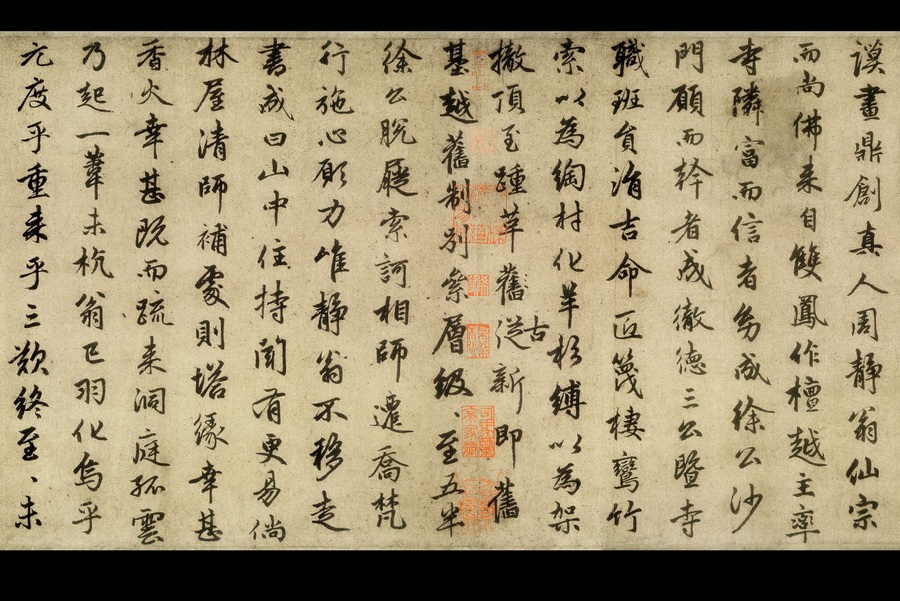 謨畫鼎創真人周靜翁仙宗
而尚佛来自雙鳳作檀越主率
寺隣富而信者勇成徐公沙
門願而幹者成徹德三公暨寺
職班貟涓吉命匠篾棲鸞竹
索以為綯材化羊杉縛以為架
撤頂至踵革舊從古新即舊
基越舊制別絫層級、至五半
徐公脫屣索訶相師遷喬梵
行施心願力唯靜翁不移走
書成曰山中住持聞有更易倘
林屋清師補處則塔緣幸甚
香火幸甚既而疏来洞庭孤雲
乃起一葦未杭翁已羽化烏乎
元度乎重来乎三歎終至、未